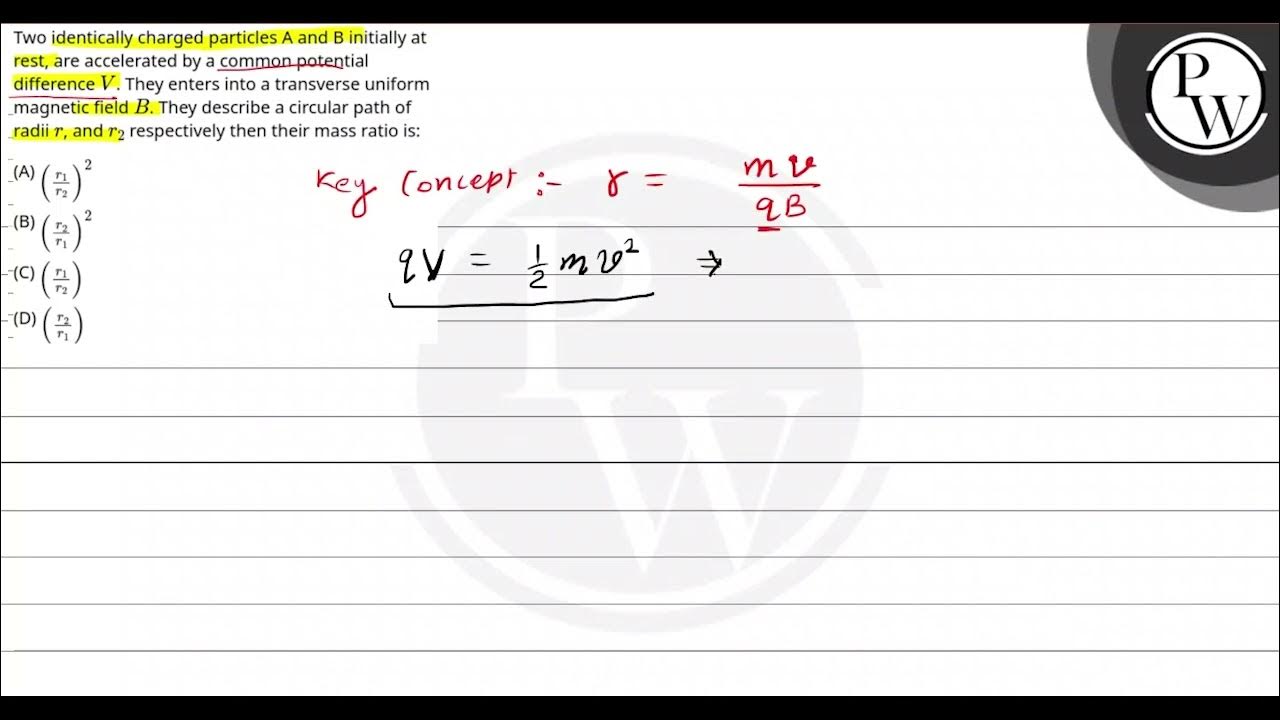 Two identically charged particles A and B initially at
rest, are accelerated by a common potential
difference V. They enters into a transverse uniform
magnetic field B. They describe a circular path of
radii r, and r₂ respectively then their mass ratio is:
(A) (r₁/r₂)²
(B) (r₂/r₁)²
(C) (r₁/r₂)
(D) (r₂/r₁)
Key Concept :- r = mv/qB
qV = 1/2 mv² ⇒
P
W
P
W